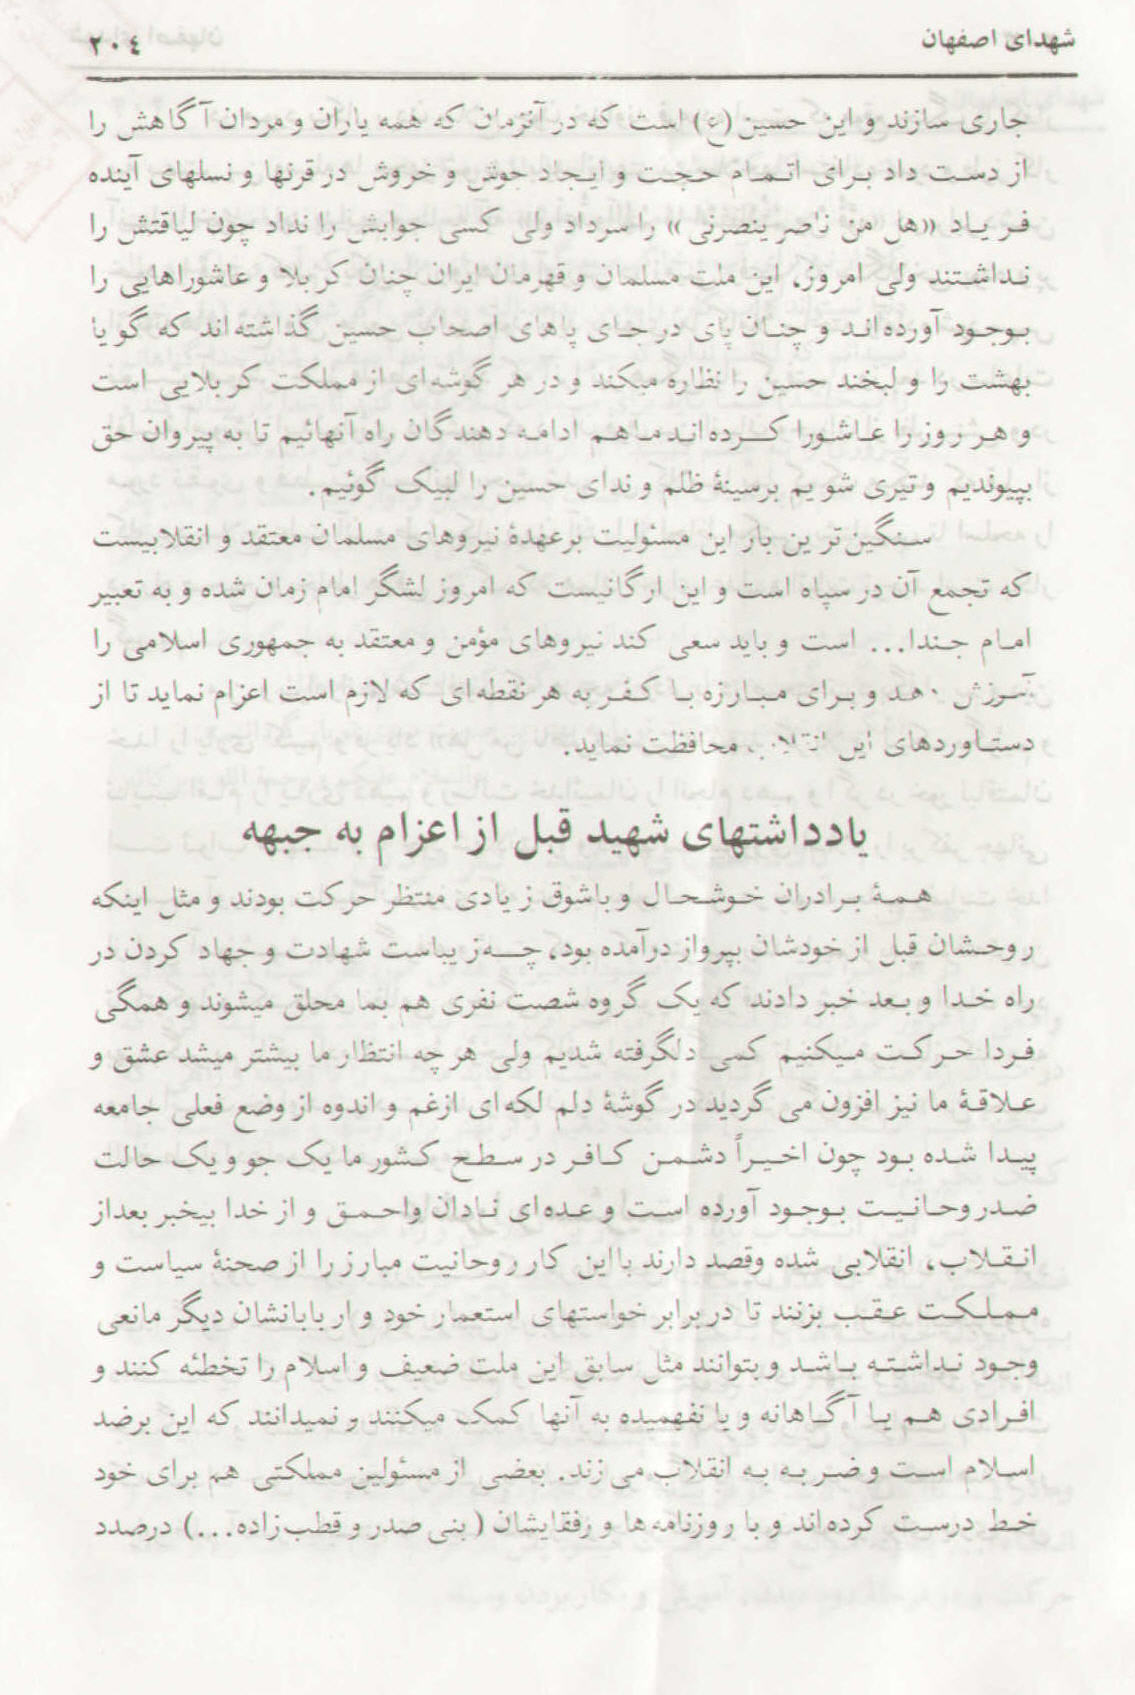 شهدای اصفهان ۲۰٤
جاری سازند و این حسین (ع) است که در آنزمان که همه یاران و مردان آگاهش را
از دست داد برای اتمام حجت و ایجاد جوش و خروش در قرنها و نسلهای آینده
فریاد «هل من ناصر ینصرنی» را سرداد ولی کسی جوابش را نداد چون لیاقتش را
نداشتند ولی امروز، این ملت مسلمان و قهرمان ایران چنان کربلا و عاشوراهایی را
بوجود آورده‌اند و چنان پای در جای پاهای اصحاب حسین گذاشته‌اند که گویا
بهشت را و لبخند حسین را نظاره میکند و در هر گوشه‌ای از مملکت کربلایی است
و هر روز را عاشورا کرده‌اند ما هم ادامه دهندگان راه آنهائیم تا به پیروان حق
بپیوندیم و تیری شویم برسینهٔ ظلم و ندای حسین را لبیک گوئیم.
سنگین‌ترین بار این مسئولیت برعهدهٔ نیروهای مسلمان معتقد و انقلابیست
که تجمع آن در سپاه است و این ارگانیست که امروز لشگر امام زمان شده و به تعبیر
امام جندا... است و باید سعی کند نیروهای مؤمن و معتقد به جمهوری اسلامی را
و برای مبارزه با کفر به هر نقطه‌ای که لازم است اعزام نماید تا از
دستاوردهای این انقلاب محافظت نماید.
یادداشتهای شهید قبل از اعزام به جبهه
همهٔ برادران خوشحال و باشوق زیادی منتظر حرکت بودند و مثل اینکه
روحشان قبل از خودشان بپرواز درآمده بود، چه زیباست شهادت و جهاد کردن در
راه خدا و بعد خبر دادند که یک گروه شصت نفری هم بما محلق میشوند و همگی
فردا حرکت میکنیم کمی دلگرفته شدیم ولی هر چه انتظار ما بیشتر میشد عشق و
علاقهٔ ما نیز افزون می گردید در گوشهٔ دلم لکه‌ای ازغم و اندوه از وضع فعلی جامعه
پیدا شده بود چون اخیراً دشمن کافر در سطح کشور ما یک جو و یک حالت
ضدروحانیت بوجود آورده است و عده‌ای نادان واحمق و از خدا بیخبر بعداز
انقلاب، انقلابی شده وقصد دارند بااین کار روحانیت مبارز را از صحنهٔ سیاست و
مملکت عقب بزنند تا در برابر خواستهای استعمار خود و اربابانشان دیگر مانعی
وجود نداشته باشد و بتوانند مثل سابق این ملت ضعیف و اسلام را تخطئه کنند و
افرادی هم یا آگاهانه و یا نفهمیده به آنها کمک میکنند و نمیدانند که این برضد
اسلام است و ضربه به انقلاب می‌زند. بعضی از مسئولین مملکتی هم برای خود
خط درست کرده‌اند و با روزنامه‌ها و رفقایشان (بنی صدر و قطب‌زاده...) درصدد